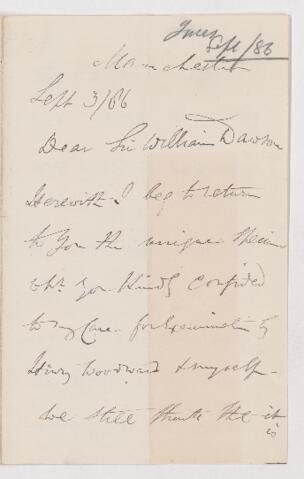 Sept/86
Manchester
Sept 3/86
Dear Sir William Dawson
Herewith I beg to return
to you the unique specimen
whh. you kindly confided
to my care for Examination by
Henry Woodward & myself -
we still think tht it
is